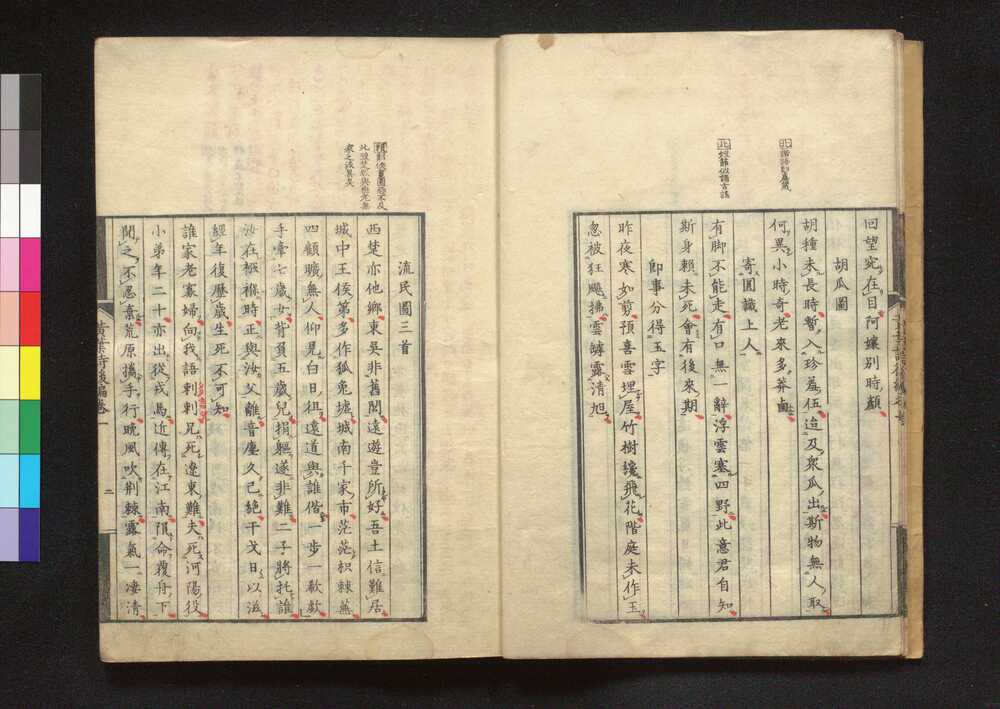 回望究在目阿孃別時顏
胡瓜圖
胡種未長時暫入珍蔫伍迨及衆瓜出斯物無人取
何異小時奇老來多莽鹵
寄圓識上人
有脚不能走有口無一辭浮雲塞四野此意君自知
斯身賴未死會有後來期
卽事分得玉字
昨夜寒如剪預喜雪埋屋竹樹讒飛花階庭未作玉
忽被狂飈拂雲罅露清旭
流民圖三首
西楚亦他鄉東吳非舊閭遠遊豈所好吾土信難居
城中王侯第多作狐兔墟城南千家市茫茫枳棘蕪
四顧曠無人仰見白日徂遠道與誰偕一步一歔欷
手牽七歲女背負五歲兒損軀遂非難二子將托誰
汝在襁褓時正與汝父離音塵久已絶干戈日以滋
經年復歷歲生死不可知
誰家老寡婦向我語刺刺兄死遼東難夫死河陽役
小弟年二十亦出從戎馬近傳在江南隕命覆舟下
聞之不忍棄荒原攜手行曉風吹荆棘露氣一凄清
黃葉夕陽
二